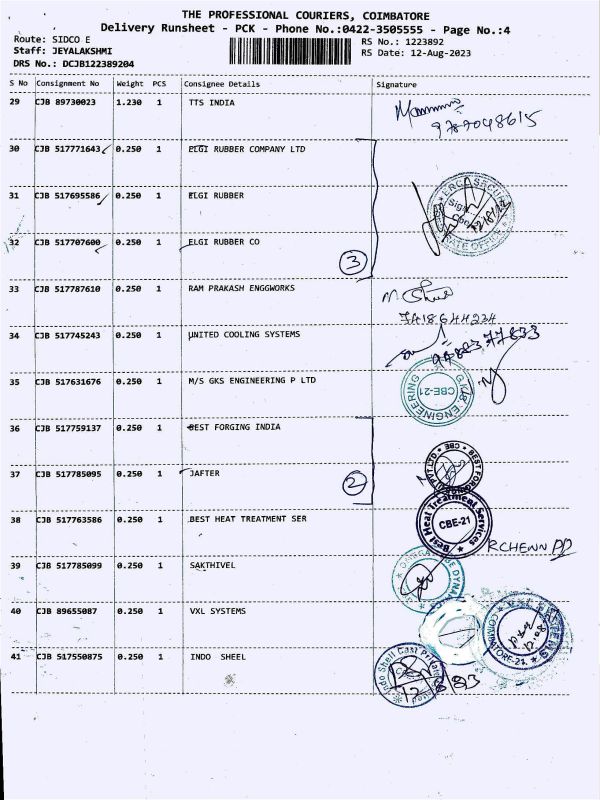 THE PROFESSIONAL COURIERS, COIMBATORE
Delivery Runsheet - PCK - Phone No.:0422-3505555 - Page No.:4
Route: SIDCO E
RS No.: 1223892
Staff: JEYALAKSHMI
RS Date: 12-Aug-2023
DRS No.: DCJB122389204
S No Consignment No Weight PCS Consignee Details Signature
29 CJB 89730023 1.230 1 TTS INDIA
9787048615
30 CJB 517771643 0.250 1 ELGI RUBBER COMPANY LTD
31 CJB 517695586 0.250 1 ELGI RUBBER
32 CJB 517707600 0.250 1 ELGI RUBBER CO
3
33 CJB 517787610 0.250 1 RAM PRAKASH ENGGWORKS
34 CJB 517745243 0.250 1 UNITED COOLING SYSTEMS
35 CJB 517631676 0.250 1 M/S GKS ENGINEERING P LTD
CBE-21
36 CJB 517759137 0.250 1 BEST FORGING INDIA
37 CJB 517785095 0.250 1 JAFTER
2
38 CJB 517763586 0.250 1 BEST HEAT TREATMENT SER
Best Heat Treatment Services
CBE-21
39 CJB 517785099 0.250 1 SAKTHIVEL
40 CJB 89655087 0.250 1 VXL SYSTEMS
41 CJB 517550875 0.250 1 INDO SHEEL